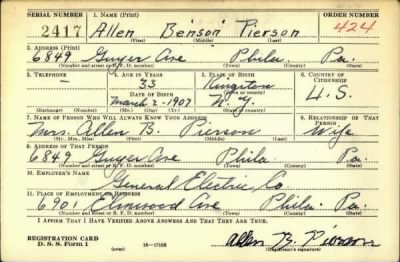 SERIAL NUMBER 1. NAME (Print) ORDER NUMBER
2417 Allen Benson Pierson 424
(First) (Middle) (Last)
2. ADDRESS (Print)
6849 Guyer Ave Phila. Pa.
(Number and street or R. F. D. number) (Town) (County) (State)
3. TELEPHONE 4. AGE IN YEARS 5. PLACE OF BIRTH 6. COUNTRY OF CITIZENSHIP
— 33 Kingston U. S.
DATE OF BIRTH (Town or county)
March 2-1907 N. Y.
7. NAME OF PERSON WHO WILL ALWAYS KNOW YOUR ADDRESS 8. RELATIONSHIP OF THAT PERSON
Mrs. Allen B. Pierson Wife
(Mr., Mrs., Miss) (First) (Middle) (Last)
9. ADDRESS OF THAT PERSON
6849 Guyer Ave Phila. Pa.
(Number and street or R. F. D. number) (Town) (County) (State)
10. EMPLOYER'S NAME
General Electric Co
11. PLACE OF EMPLOYMENT OR BUSINESS
6901 Elmwood Ave Phila. Pa.
(Number and street or R. F. D. number) (Town) (County) (State)
I AFFIRM THAT I HAVE VERIFIED ABOVE ANSWERS AND THAT THEY ARE TRUE.
REGISTRATION CARD
D. S. S. Form 1 (over) 16—17105 Allen B. Pierson
(Registrant's signature)